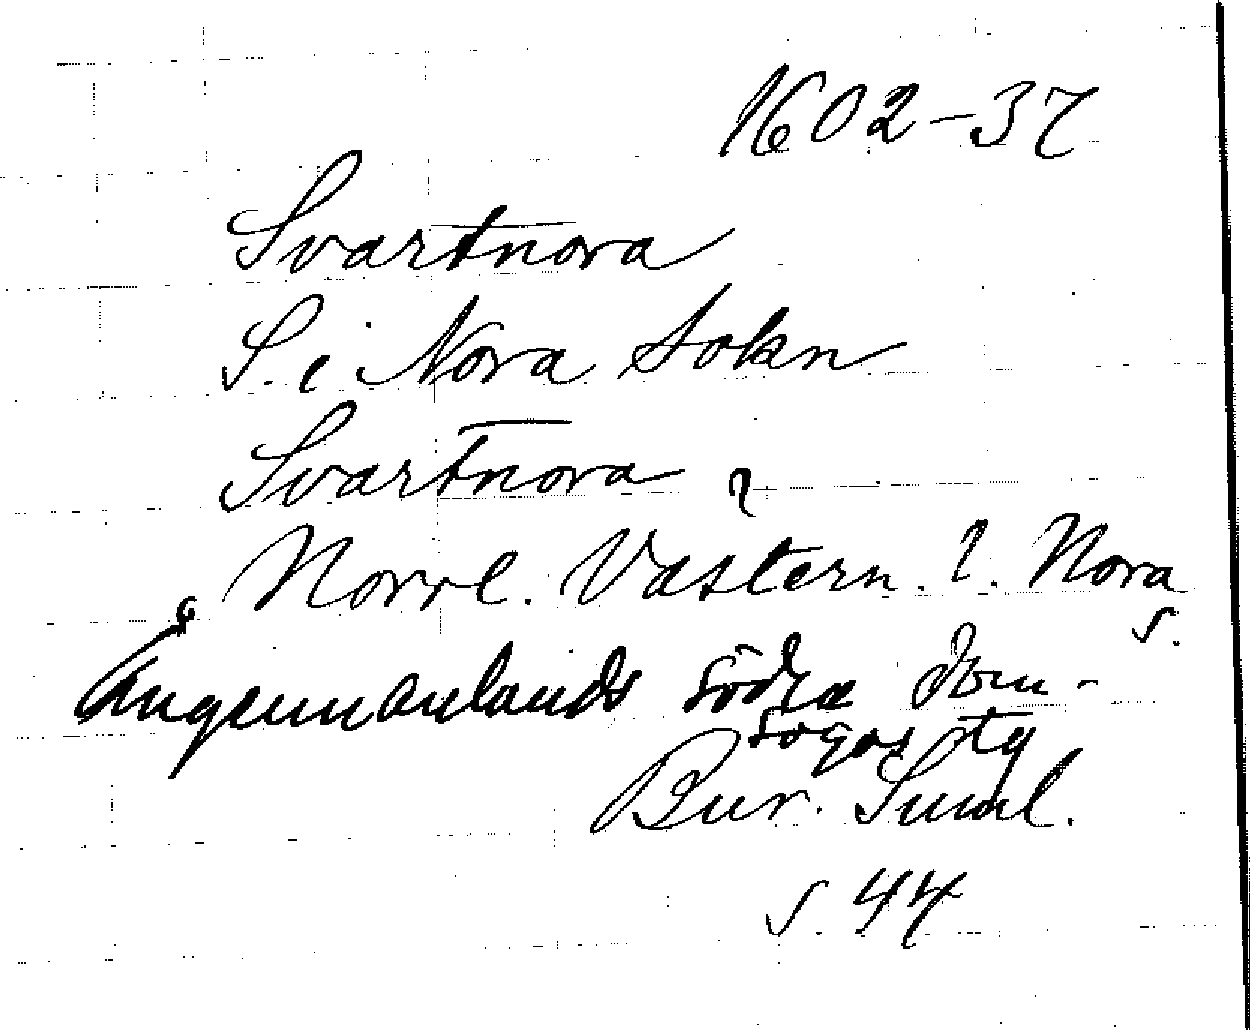 1602-37
Svartnora
S. i Nora Sokn
Svartnora ?
Norrl. Västern. l. Nora
s.
Ångermanlands södra dom-
sagas tg
Bur. Saml.
s. 44